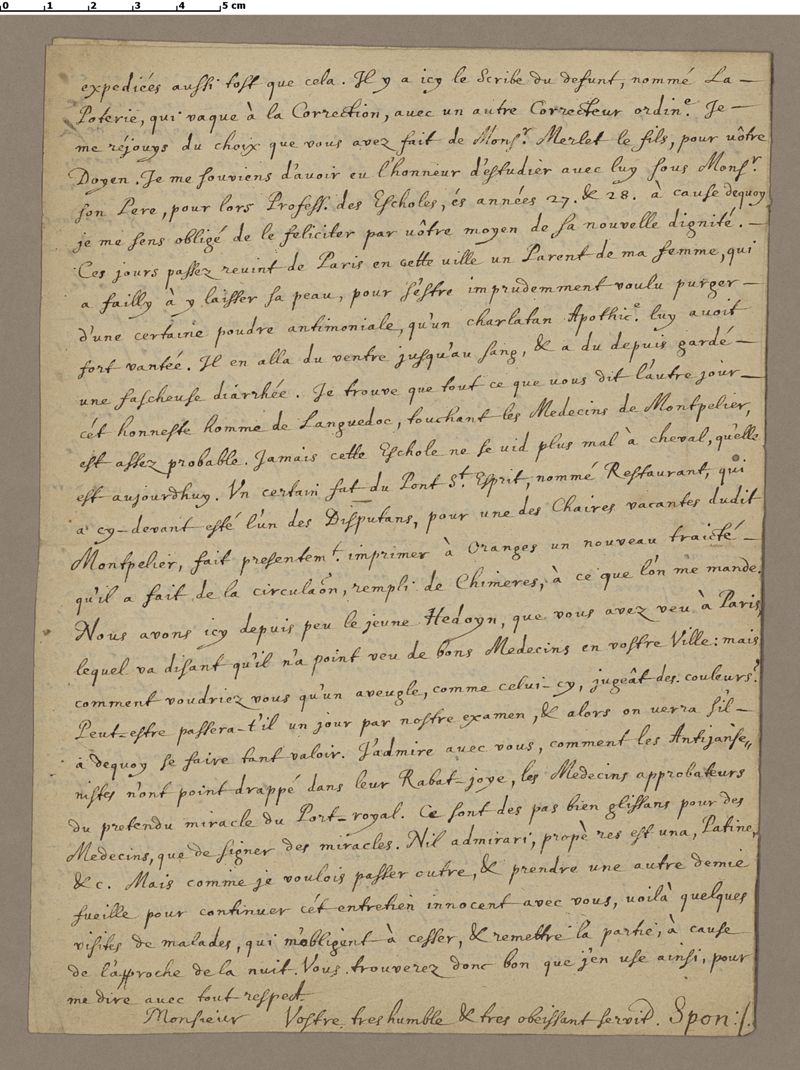 0 1 2 3 4 5 cm
expediées aussi tost que cela. Il y a icy le Scribe du defunt, nommé La—
Poterie, qui vaque à la Correction, avec un autre Correcteur ordin.e Je—
me réjouys du choix que vous avez fait de Mons.r Merlet le fils, pour vôtre
Doyen. Je me souviens d'avoir eu l'honneur d'estudier avec luy sous Mons.r
son Pere, pour lors Profess. des Escholes, és années 27. & 28. à cause dequoy
je me sens obligé de le feliciter par vôtre moyen de sa nouvelle dignité.—
Ces jours passez revint de Paris en cette ville un Parent de ma femme, qui
a failly à y laisser sa peau, pour s'estre imprudemment voulu purger—
d'une certaine poudre antimoniale, qu'un charlatan Apothic.e luy avoit
fort vantée. Il en alla du ventre jusqu'au sang, & a du depuis gardé—
une fascheuse diarrhée. Je trouve que tout ce que vous dit l'autre jour—
cét honneste homme de Languedoc, touchant les Medecins de Montpelier,
est assez probable. Jamais cette Eschole ne se vid plus mal à cheval, qu'elle
est aujourdhuy. Un certain fat du Pont S.t Esprit, nommé Restaurant, qui
a cy-devant esté l'un des Disputans, pour une des Chaires vacantes dudit
Montpelier, fait presentem.t imprimer à Oranges un nouveau traicté—
qu'il a fait de la circulaõn, rempli de Chimeres, à ce que l'on me mande.
Nous avons icy depuis peu le jeune Hedoyn, que vous avez veu à Paris,
lequel va disant qu'il n'a point veu de bons Medecins en vostre Ville: mais
comment voudriez vous qu'un aveugle, comme celui-cy, jugeât des couleurs?
Peut-estre passera-t'il un jour par nostre examen, & alors on verra s'il—
a dequoy se faire tant valoir. J'admire avec vous, comment les Antijanse„
nistes n'ont point drappé dans leur Rabat-joye, les Medecins approbateurs
du pretendu miracle du Port-royal. Ce sont des pas bien glissans pour des
Medecins, que de signer des miracles. Nil admirari, propè res est una, Patine,
& c. Mais comme je voulois passer outre, & prendre une autre demie
fueille pour continuer cét entretien innocent avec vous, voilà quelques
visites de malades, qui m'obligent à cesser, & remettre la partie, à cause
de l'approche de la nuit. Vous trouverez donc bon que j'en use ainsi, pour
me dire avec tout respect
Monsieur Vostre tres humble & tres obeissant servit. Spon:/.